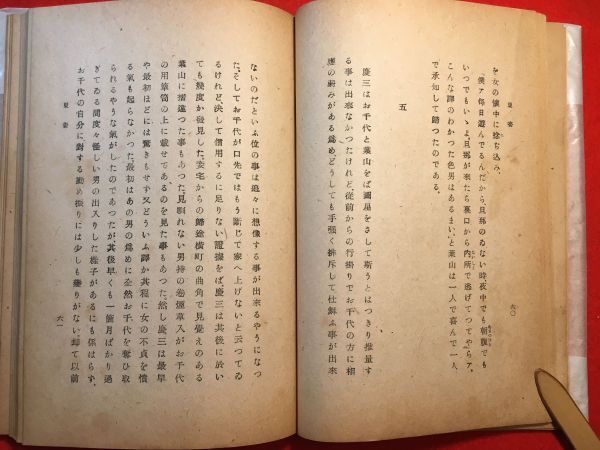 夏すがた
六〇
を女の懐中に捻ぢ込み、
「僕ァ毎日遊んでるんだから、旦那のゐない時、夜中でも朝腹でも
いつでもいゝよ。旦那が来たら裏口から内所で逃げてつてやらァ。
こんな譯のわかつた色男はあるまい」と葉山は一人で喜んで一人
で承知して歸つたのである。
五
慶三はお千代と葉山をば
る事は出來なかつたけれど、從前からの行掛りでお千代の方に相
應の弱みがある爲めどうしても手强く排斥して仕舞ふ事が出來
ないのだといふ位の事は追々に想像する事が出來るやうになつ
た。そしてお千代が口先ではもう斷じて家へ上げないと云つてゐ
るけれど、決して信用するに足りない證據をば慶三は其後に於い
ても幾度か發見した。妾宅からの歸途横町の曲角で見覺えのある
葉山に摺違つた事もあつた。見馴れない男持の巻煙草入がお千代
の用簞笥の上に載せてあるのを見た事もあつた。然し慶三は最早
や最初ほどには驚きもせず又どういふ譯か其程に女の不貞を憤
る氣も起らなかつた。最初はあの男の爲めに全然お千代を奪ひ取
られるやうな氣がしたのであつたが、其後早くも一箇月ばかり過
ぎてゐる間度々怪しい男の出入りした様子があるにも係はらず、
お千代の自分に對する勤め振りには少しも變りがない。却て以前
六一